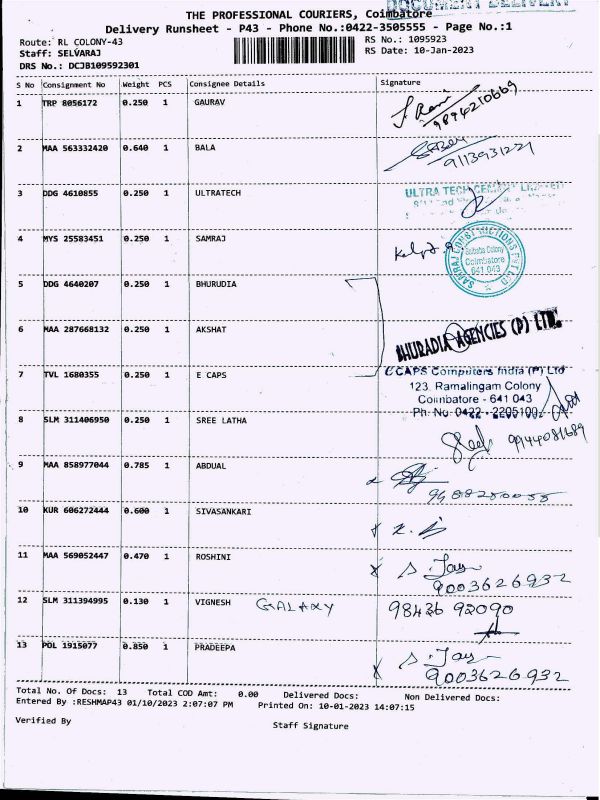 DOCUMENT DELIVERY
THE PROFESSIONAL COURIERS, Coimbatore
Delivery Runsheet - P43 - Phone No.:0422-3505555 - Page No.:1
Route: RL COLONY-43 RS No.: 1095923
Staff: SELVARAJ RS Date: 10-Jan-2023
DRS No.: DCJB109592301
S No Consignment No Weight PCS Consignee Details Signature
1 TRP 8056172 0.250 1 GAURAV
9894210669
2 MAA 563332420 0.640 1 BALA
9113931221
3 DDG 4610855 0.250 1 ULTRATECH ULTRA TECH CEMENT LIMITED
4 MYS 25583451 0.250 1 SAMRAJ
SAMRAJ CONSTRUCTIONS PVT LTD
Saibaba Colony
Coimbatore
641 043
5 DDG 4640207 0.250 1 BHURUDIA
6 MAA 287668132 0.250 1 AKSHAT BHURADIA AGENCIES (P) LTD.
7 TVL 1680355 0.250 1 E CAPS E CAPS Computers India (P) Ltd
123, Ramalingam Colony
Coimbatore - 641 043
Ph: No: 0422 - 2205100
8 SLM 311406950 0.250 1 SREE LATHA
9944081689
9 MAA 858977044 0.785 1 ABDUAL
10 KUR 606272444 0.600 1 SIVASANKARI
11 MAA 569052447 0.470 1 ROSHINI
9003626932
12 SLM 311394995 0.130 1 VIGNESH GALAXY 98436 92090
13 POL 1915077 0.850 1 PRADEEPA
9003626932
Total No. Of Docs: 13 Total COD Amt: 0.00 Delivered Docs: Non Delivered Docs:
Entered By :RESHMAP43 01/10/2023 2:07:07 PM Printed On: 10-01-2023 14:07:15
Verified By Staff Signature